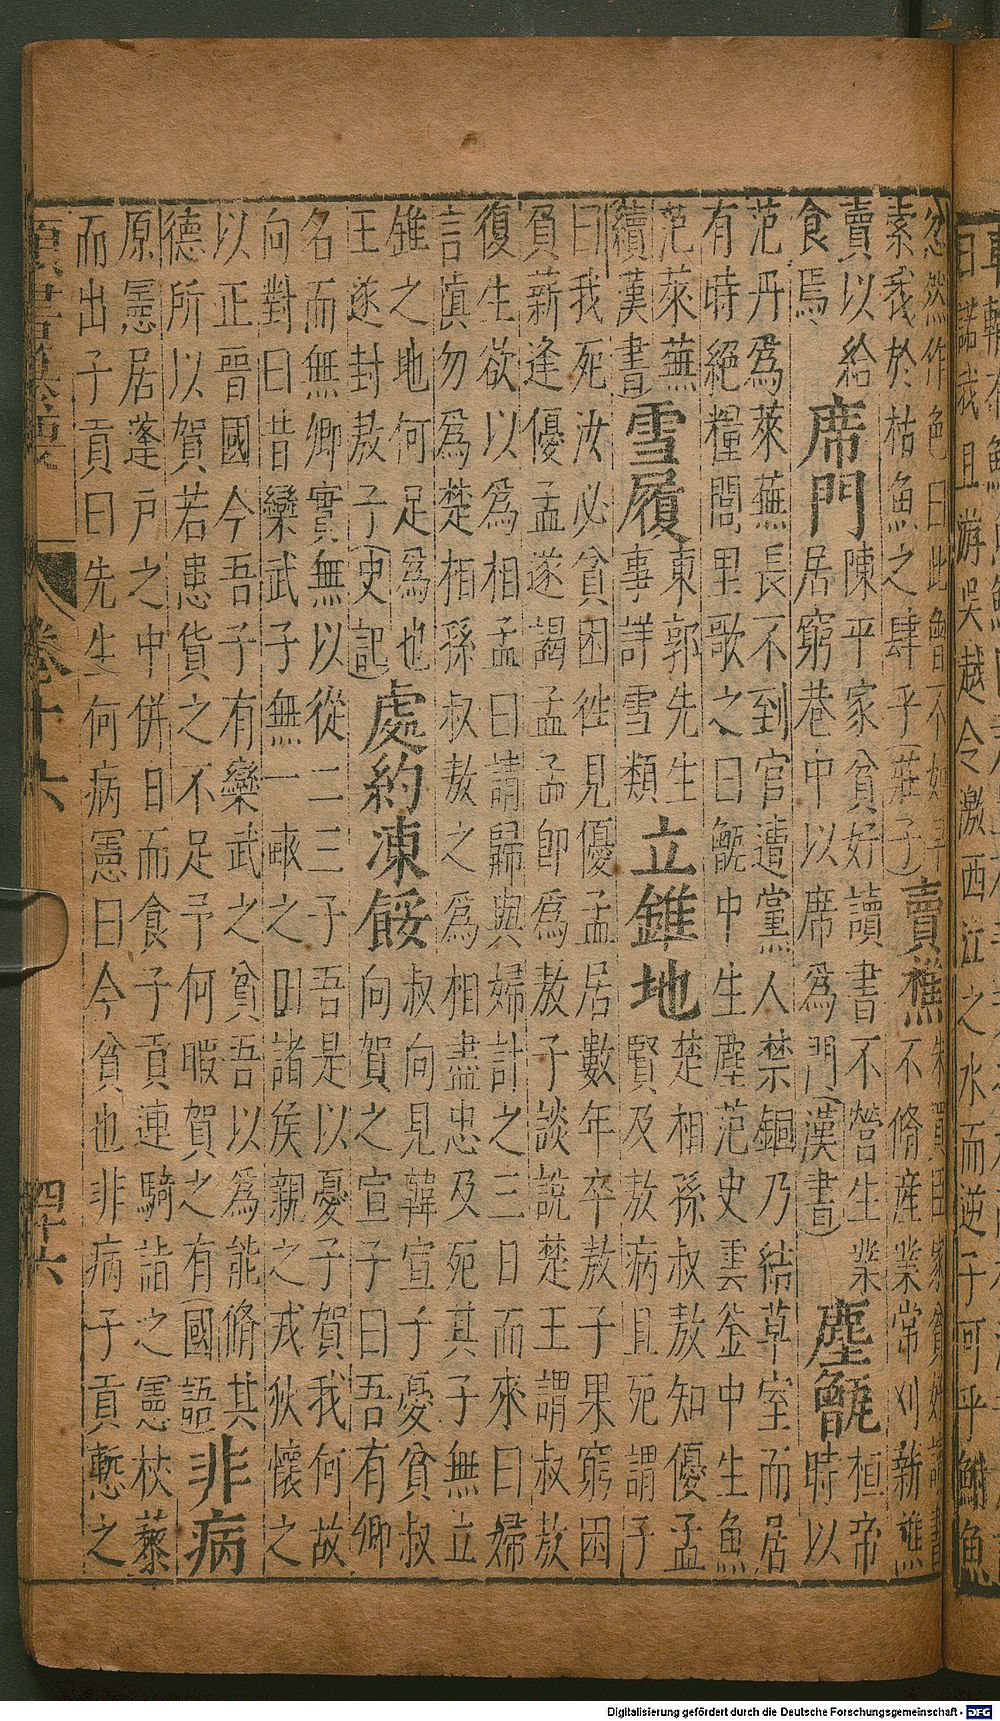 日諾我且游吳越令激西江之水而逆子可乎鮒魚
忿然作色曰此曾不如早
索我於枯魚之肆乎(莊子)
賣樵
朱買臣家貧好讀書
不脩産業常刈薪樵
賣以給
食焉
席門
陳平家貧好讀書不營生業
居窮巷中以席爲門(漢書)
塵甑
桓帝
時以
范丹爲萊蕪長不到官遭黨人禁錮乃結草室而居
有時絕糧閭里歌之曰甑中生塵范史雲釜中生魚
范萊蕪
續漢書
雪履
東郭先生
事詳雪類
立錐地
楚相孫叔敖知優孟
賢及敖病且死謂子
曰我死汝必貧困徃見優孟居數年卒敖子果窮困
負薪逢優孟遂謁孟孟卽爲敖子談說楚王謂叔敖
復生欲以爲相孟曰請歸與婦計之三日而來曰婦
言慎勿爲楚相孫叔敖之爲相盡忠及死其子無立
錐之地何足爲也
王遂封敖子(史記)
處約凍餒
叔向見韓宣子憂貧叔
向賀之宣子曰吾有卿
名而無卿實無以從二三子吾是以憂子賀我何故
向對曰昔欒武子無一畝之田諸侯親之戎狄懷之
以正晉國今吾子有欒武之貧吾以爲能脩其
德所以賀若患貨之不足予何暇賀之有(國語)
非病
原憲居蓬戶之中併日而食子貢連騎詣之憲杖藜
而出子貢曰先生何病憲曰今貧也非病子貢慙之
卷十六
四十六
Digitalisierung gefördert durch die Deutsche Forschungsgemeinschaft - DFG